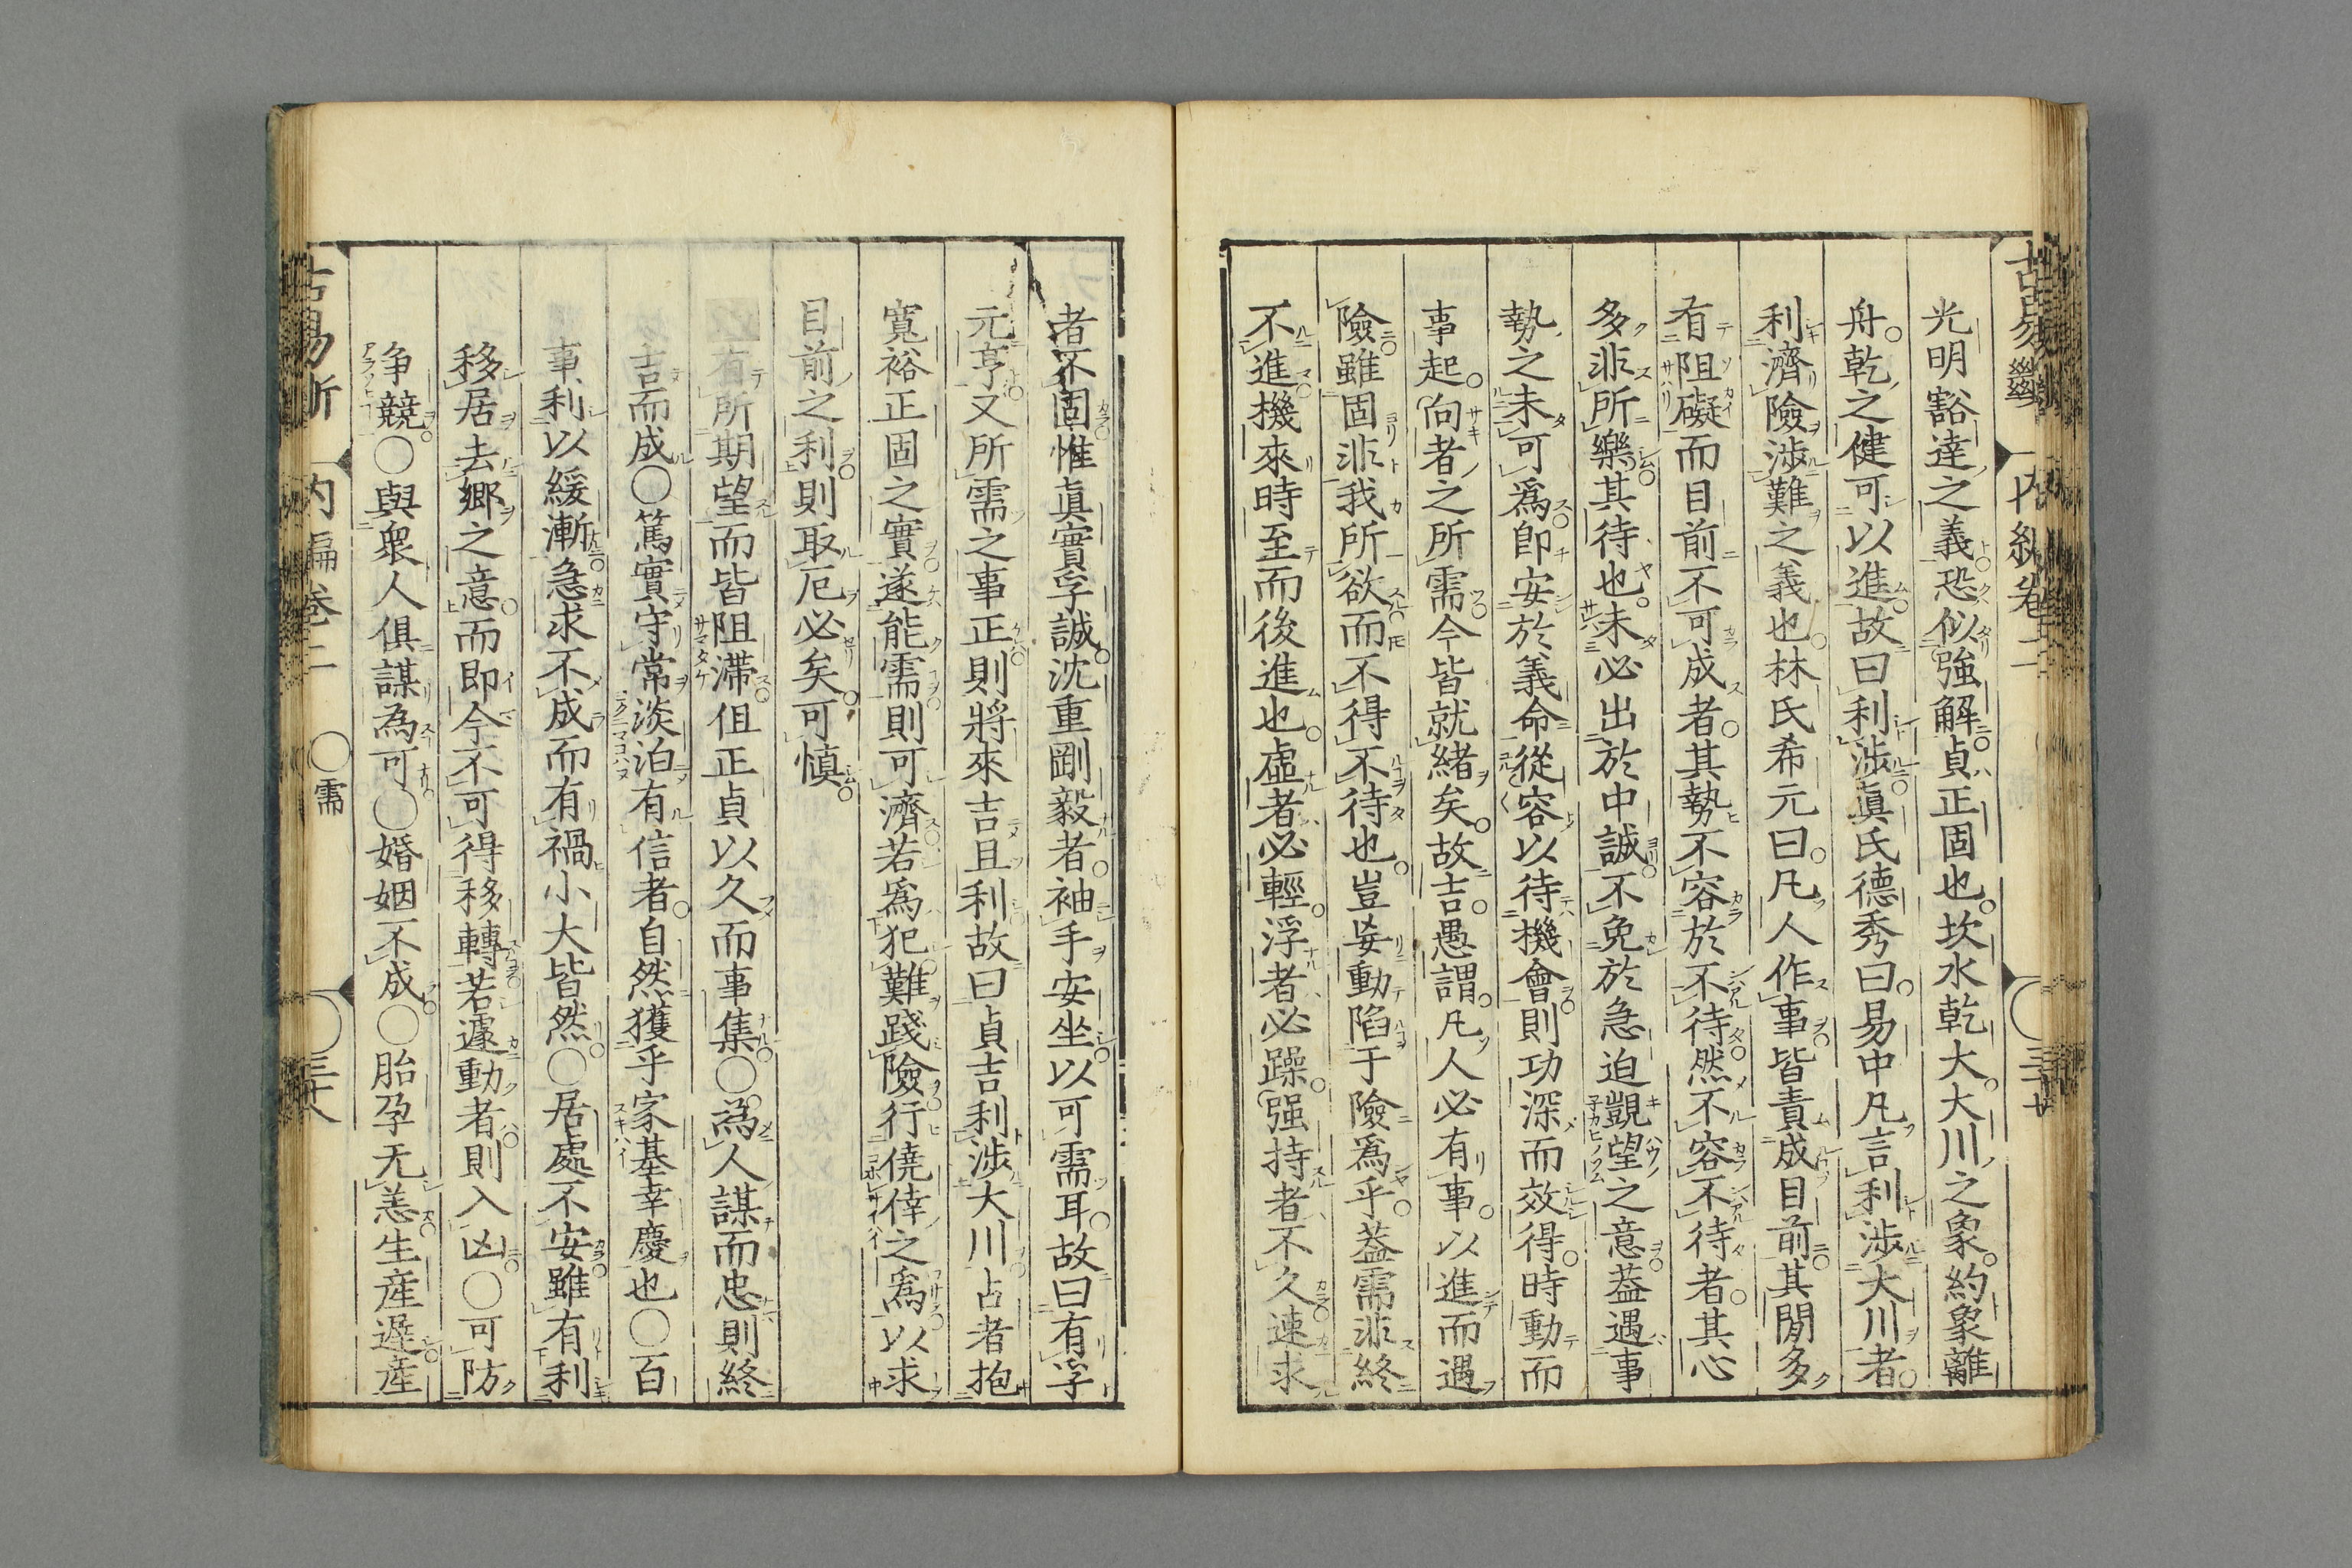 光明豁達之義恐似強解貞正固也坎水乾大大川之象約象離
舟乾之健可以進故曰利涉眞氏德秀曰易中凡言利涉大川者
利濟險涉難之義也林氏希元曰凡人作事皆責成目前其閒多
有阻礙而目前不可成者其勢不容於不待然不容不待者其心
多非所樂其待也未必出於中誠不免於急迫覬望之意蓋遇事
勢之未可爲卽安於義命從容以待機會則功深而效得時動而
事起向者之所需今皆就緒矣故吉愚謂凡人必有事以進而遇
險雖固非我所欲而不得不待也豈妄動陷于險爲乎蓋需非終
不進機來時至而後進也虛者必輕浮者必躁强持者不久速求
者不固惟眞實孚誠沈重剛毅者袖手安坐以可需耳故曰有孚
元亨又所需之事正則將來吉且利故曰貞吉利涉大川占者抱
寬裕正固之實遂能需則可濟若爲犯難踐險行僥倖之爲以求
目前之利則取厄必矣可愼
有所期望而皆阻滯但正貞以久而事集○為人謀而忠則終
吉而成○篤實守常淡泊有信者自然獲乎家基幸慶也○百
事利以緩漸急求不成而有禍小大皆然○居處不安雖有利
移居去鄉之意而即今不可得移轉若遽動者則入凶○可防
争競○與衆人俱謀為可○婚姻不成○胎孕无恙生産遲産
內編卷二 ○需